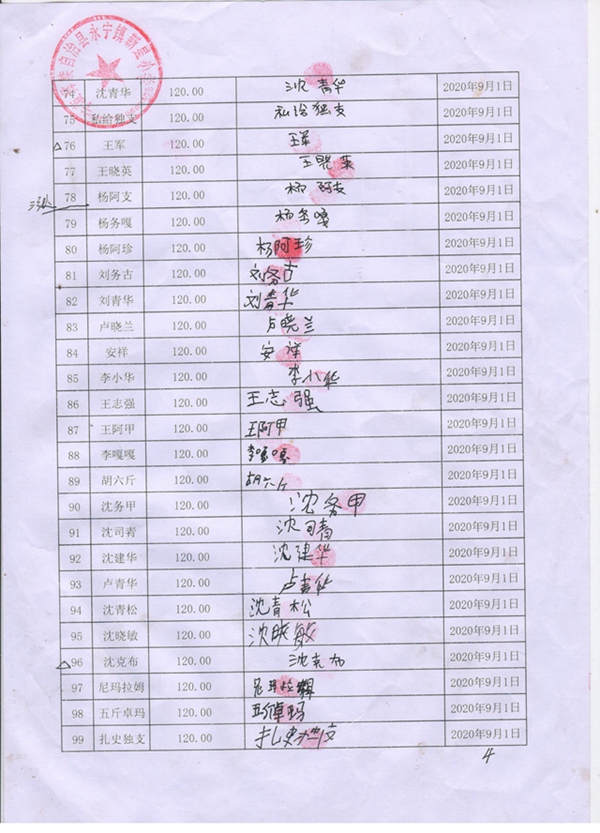 自治县永宁镇
74 沈青华 120.00 沈青华 2020年9月1日
75 私给独支 120.00 私给独支 2020年9月1日
△76 王军 120.00 王军 2020年9月1日
77 王晓英 120.00 王晓英 2020年9月1日
78 杨阿支 120.00 杨阿支 2020年9月1日
79 杨务嘎 120.00 杨务嘎 2020年9月1日
80 杨阿珍 120.00 杨阿珍 2020年9月1日
81 刘务古 120.00 刘务古 2020年9月1日
82 刘青华 120.00 刘青华 2020年9月1日
83 卢晓兰 120.00 卢晓兰 2020年9月1日
84 安祥 120.00 安祥 2020年9月1日
85 李小华 120.00 李小华 2020年9月1日
86 王志强 120.00 王志强 2020年9月1日
87 王阿甲 120.00 王阿甲 2020年9月1日
88 李嘎嘎 120.00 李嘎嘎 2020年9月1日
89 胡六斤 120.00 胡六斤 2020年9月1日
90 沈务甲 120.00 沈务甲 2020年9月1日
91 沈司青 120.00 沈司青 2020年9月1日
92 沈建华 120.00 沈建华 2020年9月1日
93 卢青华 120.00 卢青华 2020年9月1日
94 沈青松 120.00 沈青松 2020年9月1日
95 沈晓敏 120.00 沈晓敏 2020年9月1日
△96 沈克布 120.00 沈克布 2020年9月1日
97 尼玛拉姆 120.00 尼玛拉姆 2020年9月1日
98 五斤卓玛 120.00 五斤卓玛 2020年9月1日
99 扎史独支 120.00 扎史独支 2020年9月1日
4